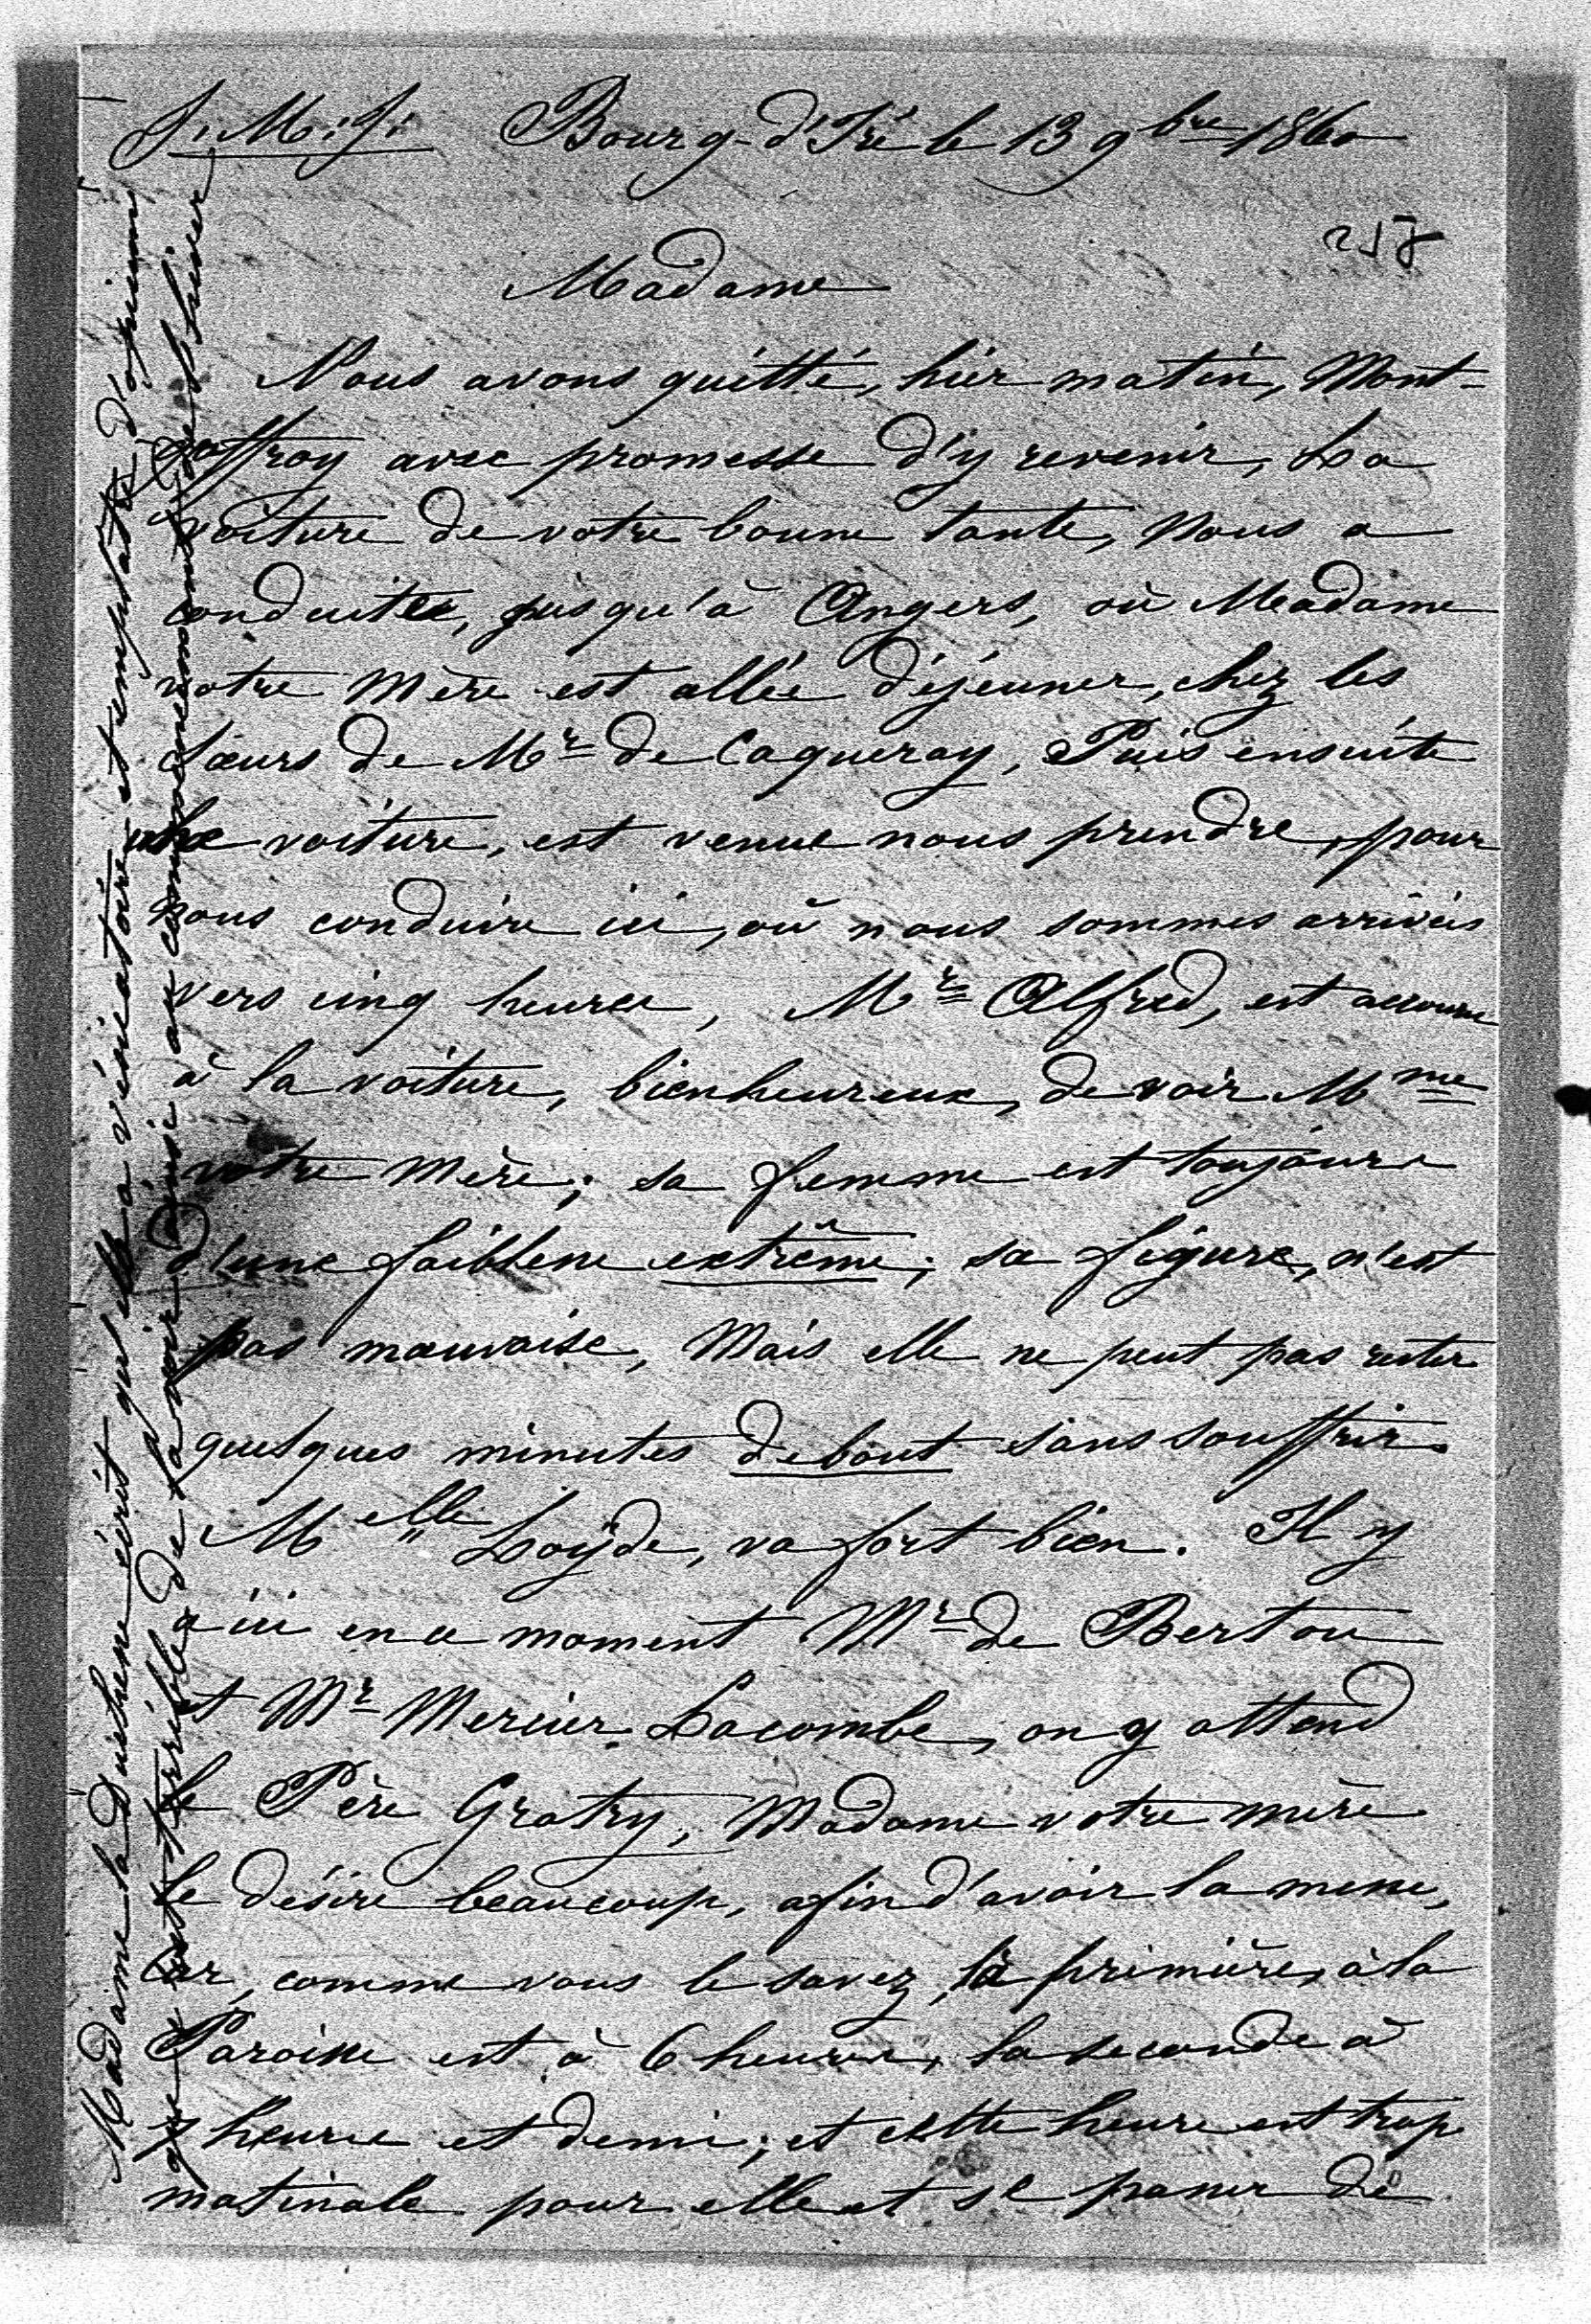 J. M. J. Bourg-d'Iré le 13 9bre 1860
217
Madame
Nous avons quitté, hier matin, Mont-
goffroy avec promesse d'y revenir, La
voiture de votre bonne tante, nous a
conduites, jusqu'à Angers, où Madame
votre mère est allée déjeuner, chez les
sœurs de Mr de Caqueray, Puis ensuite
une voiture, est venue nous prendre, pour
nous conduire ici, où nous sommes arrivées
vers cinq heures, Mr Alfred, est accouru
à la voiture, bienheureux, de voir Mme
votre mère; sa femme est toujours
d'une faiblesse extrême; sa figure, n'est
pas mauvaise, Mais elle ne peut pas rester
quelques minutes debout sans souffrir.
Melle Loÿde, va fort bien. Il y
a ici en ce moment Mr de Bertou
et Mr Mercier Lacombe, on y attend
le Père Gratry, Madame votre mère
le désire beaucoup, afin d'avoir la messe,
car, comme vous le savez, la première, à la
Paroisse est à 6 heures, la seconde à
7 heures et demi; et cette heure est trop
matinale pour elle et se passer de
Madame la Duchesse écrit qu'elle a vésicatoire et emplâtre d'opium
que c'est terrible de la voir ainsi au commencement de l'hiver